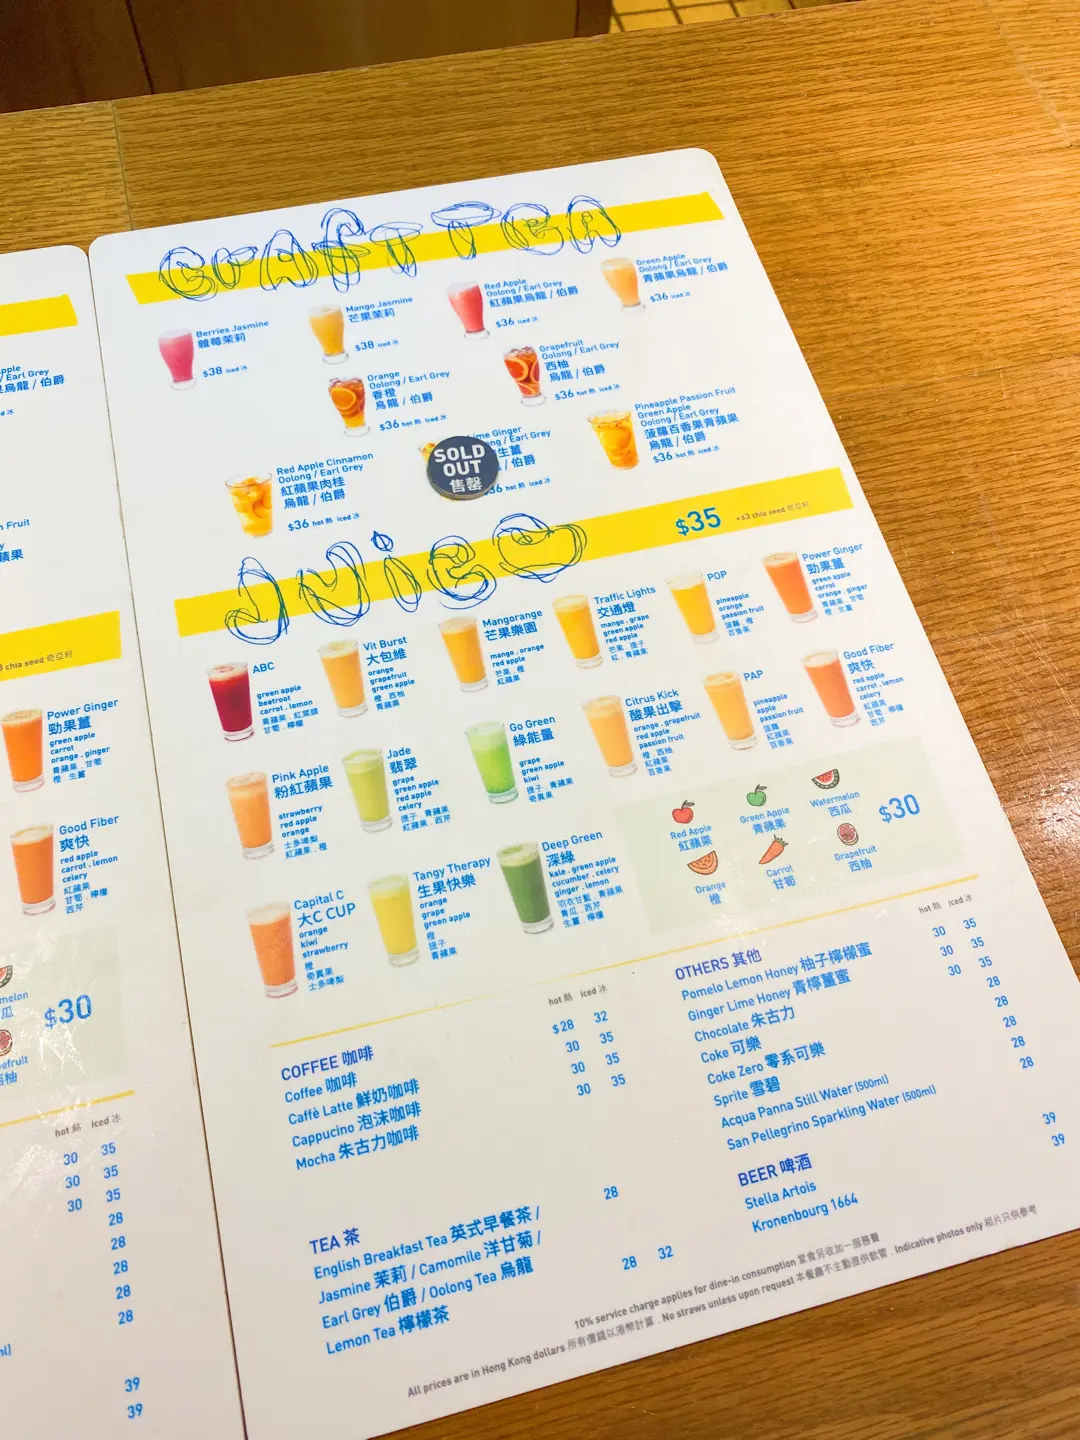 CrAfT TEA
Berries Jasmine
雜莓茉莉
$38 iced 冰
Mango Jasmine
芒果茉莉
$38 iced 冰
Red Apple
Oolong / Earl Grey
紅蘋果烏龍 / 伯爵
$36 iced 冰
Green Apple
Oolong / Earl Grey
青蘋果烏龍 / 伯爵
$36 iced 冰
Orange
Oolong / Earl Grey
香橙
烏龍 / 伯爵
$36 hot 熱 iced 冰
Grapefruit
Oolong / Earl Grey
西柚
烏龍 / 伯爵
$36 hot 熱 iced 冰
Red Apple Cinnamon
Oolong / Earl Grey
紅蘋果肉桂
烏龍 / 伯爵
$36 hot 熱 iced 冰
SOLD
OUT
售罄
ime Ginger
ong / Earl Grey
生薑
/ 伯爵
36 hot 熱 iced 冰
Pineapple Passion Fruit
Green Apple
Oolong / Earl Grey
菠蘿百香果青蘋果
烏龍 / 伯爵
$36 hot 熱 iced 冰
JUiCe
$35 +$3 chia seed 奇亞籽
ABC
green apple
beetroot
carrot . lemon
青蘋果 . 紅菜頭
甘筍 . 檸檬
Vit Burst
大包維
orange
grapefruit
green apple
橙 . 西柚
青蘋果
Mangorange
芒果樂園
mango . orange
red apple
芒果 . 橙
紅蘋果
Traffic Lights
交通燈
mango . grape
green apple
red apple
芒果 . 提子
紅 . 青蘋果
POP
pineapple
orange
passion fruit
菠蘿 . 橙
百香果
Power Ginger
勁果薑
green apple
carrot
orange . ginger
青蘋果 . 甘筍
橙 . 生薑
Pink Apple
粉紅蘋果
strawberry
red apple
orange
士多啤梨
紅蘋果 . 橙
Jade
翡翠
grape
green apple
red apple
celery
提子 . 青蘋果
紅蘋果 . 西芹
Go Green
綠能量
grape
green apple
kiwi
提子 . 青蘋果
奇異果
Citrus Kick
酸果出擊
orange . grapefruit
red apple
passion fruit
橙 . 西柚
紅蘋果
百香果
PAP
pineapple
apple
passion fruit
菠蘿
紅蘋果
百香果
Good Fiber
爽快
red apple
carrot . lemon
celery
紅蘋果
甘筍 . 檸檬
西芹
Capital C
大C CUP
orange
kiwi
strawberry
橙
奇異果
士多啤梨
Tangy Therapy
生果快樂
orange
grape
green apple
橙
提子
青蘋果
Deep Green
深綠
kale . green apple
cucumber . celery
ginger . lemon
羽衣甘藍 . 青蘋果
青瓜 . 西芹
生薑 . 檸檬
Red Apple
紅蘋果
Green Apple
青蘋果
Watermelon
西瓜
$30
Orange
橙
Carrot
甘筍
Grapefruit
西柚
hot 熱 iced 冰
COFFEE 咖啡
Coffee 咖啡 $28 32
Caffè Latte 鮮奶咖啡 30 35
Cappucino 泡沫咖啡 30 35
Mocha 朱古力咖啡 30 35
TEA 茶
English Breakfast Tea 英式早餐茶 / 28
Jasmine 茉莉 / Camomile 洋甘菊 /
Earl Grey 伯爵 / Oolong Tea 烏龍
Lemon Tea 檸檬茶 28 32
hot 熱 iced 冰
OTHERS 其他
Pomelo Lemon Honey 柚子檸檬蜜 30 35
Ginger Lime Honey 青檸薑蜜 30 35
Chocolate 朱古力 30 35
Coke 可樂 28
Coke Zero 零系可樂 28
Sprite 雪碧 28
Acqua Panna Still Water (500ml) 28
San Pellegrino Sparkling Water (500ml) 28
BEER 啤酒
Stella Artois 39
Kronenbourg 1664 39
10% service charge applies for dine-in consumption 堂食另收加一服務費
All prices are in Hong Kong dollars 所有價錢以港幣計算 . No straws unless upon request 本餐廳不主動提供飲管 . Indicative photos only 相片只供參考
pple
/ Earl Grey
果烏龍 / 伯爵
ced 冰
n Fruit
y
蘋果
3 chia seed 奇亞籽
Power Ginger
勁果薑
green apple
carrot
orange . ginger
青蘋果 . 甘筍
橙 . 生薑
Good Fiber
爽快
red apple
carrot . lemon
celery
紅蘋果
甘筍 . 檸檬
西芹
melon
瓜
$30
efruit
西柚
hot 熱 iced 冰
30 35
30 35
30 35
28
28
28
28
28
ml)
39
39